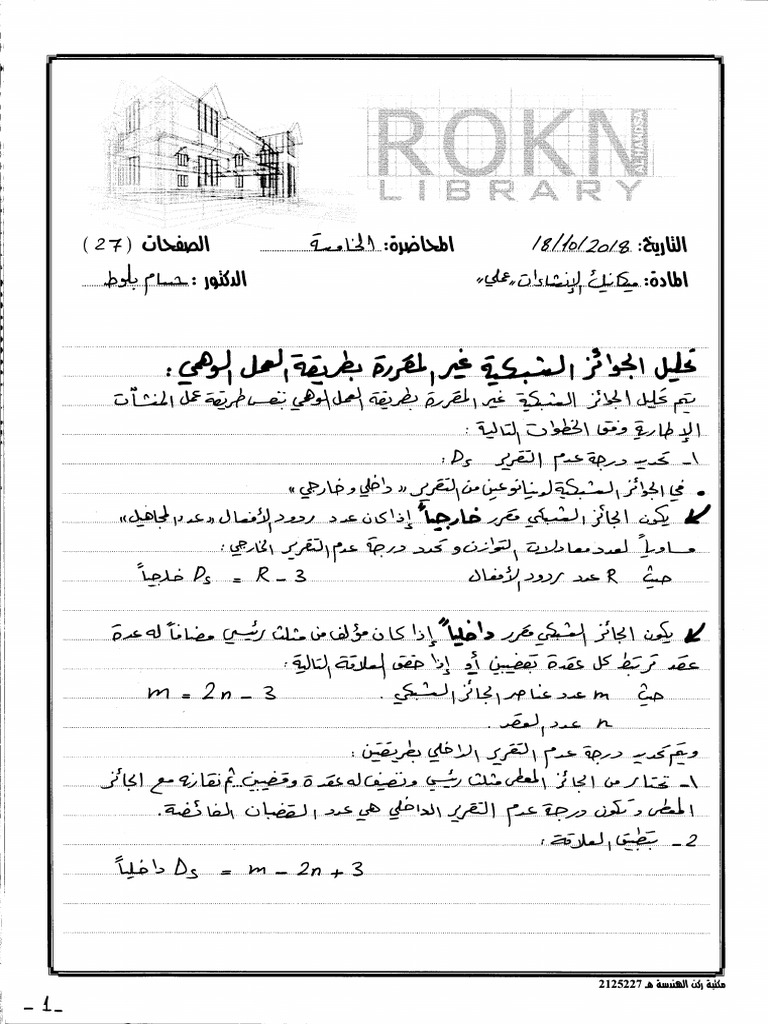 ROKN
ALHANDSA
LIBRARY
التاريخ: 18/10/2018 المحاضرة: الخامسة الصفحات (27)
المادة: ميكانيك الإنشاءات "عملي" الدكتور: حسام بلوط
تحليل الجوائز الشبكية غير المقررة بطريقة العمل الوهمي:
يتم تحليل الجائز الشبكية غير المقررة بطريقة العمل الوهمي بنفس طريقة عمل المنشآت
الإطارية وفق الخطوات التالية:
1- تحديد درجة عدم التقرير Ds:
• في الجوائز الشبكية لدينا نوعين من التقرير "داخلي وخارجي"
يكون الجائز الشبكي مقرر خارجياً إذا كان عدد ردود الأفعال "عدد المجاهيل"
مساوياً لعدد معادلات التوازن وتحدد درجة عدم التقرير الخارجي:
حيث R عدد ردود الأفعال Ds = R - 3 خارجياً
يكون الجائز الشبكي مقرر داخلياً إذا كان مؤلف من مثلث رئيسي مضافاً له عدة
عقد ترتبط كل عقدة بقضيبين أو إذا حقق العلاقة التالية:
حيث m عدد عناصر الجائز الشبكي. m = 2n - 3
n عدد العقد.
ويتم تحديد درجة عدم التقرير الداخلي بطريقتين:
1- نختار من الجائز المعطى مثلث رئيسي ونضيف له عقدة وقضيبين.. ثم نقارنه مع الجائز
المعطى وتكون درجة عدم التقرير الداخلي هي عدد القضبان الفائضة.
2- بتطبيق العلاقة:
Ds = m - 2n + 3 داخلياً
مكتبة ركن الهندسة هـ 2125227
- 1 -